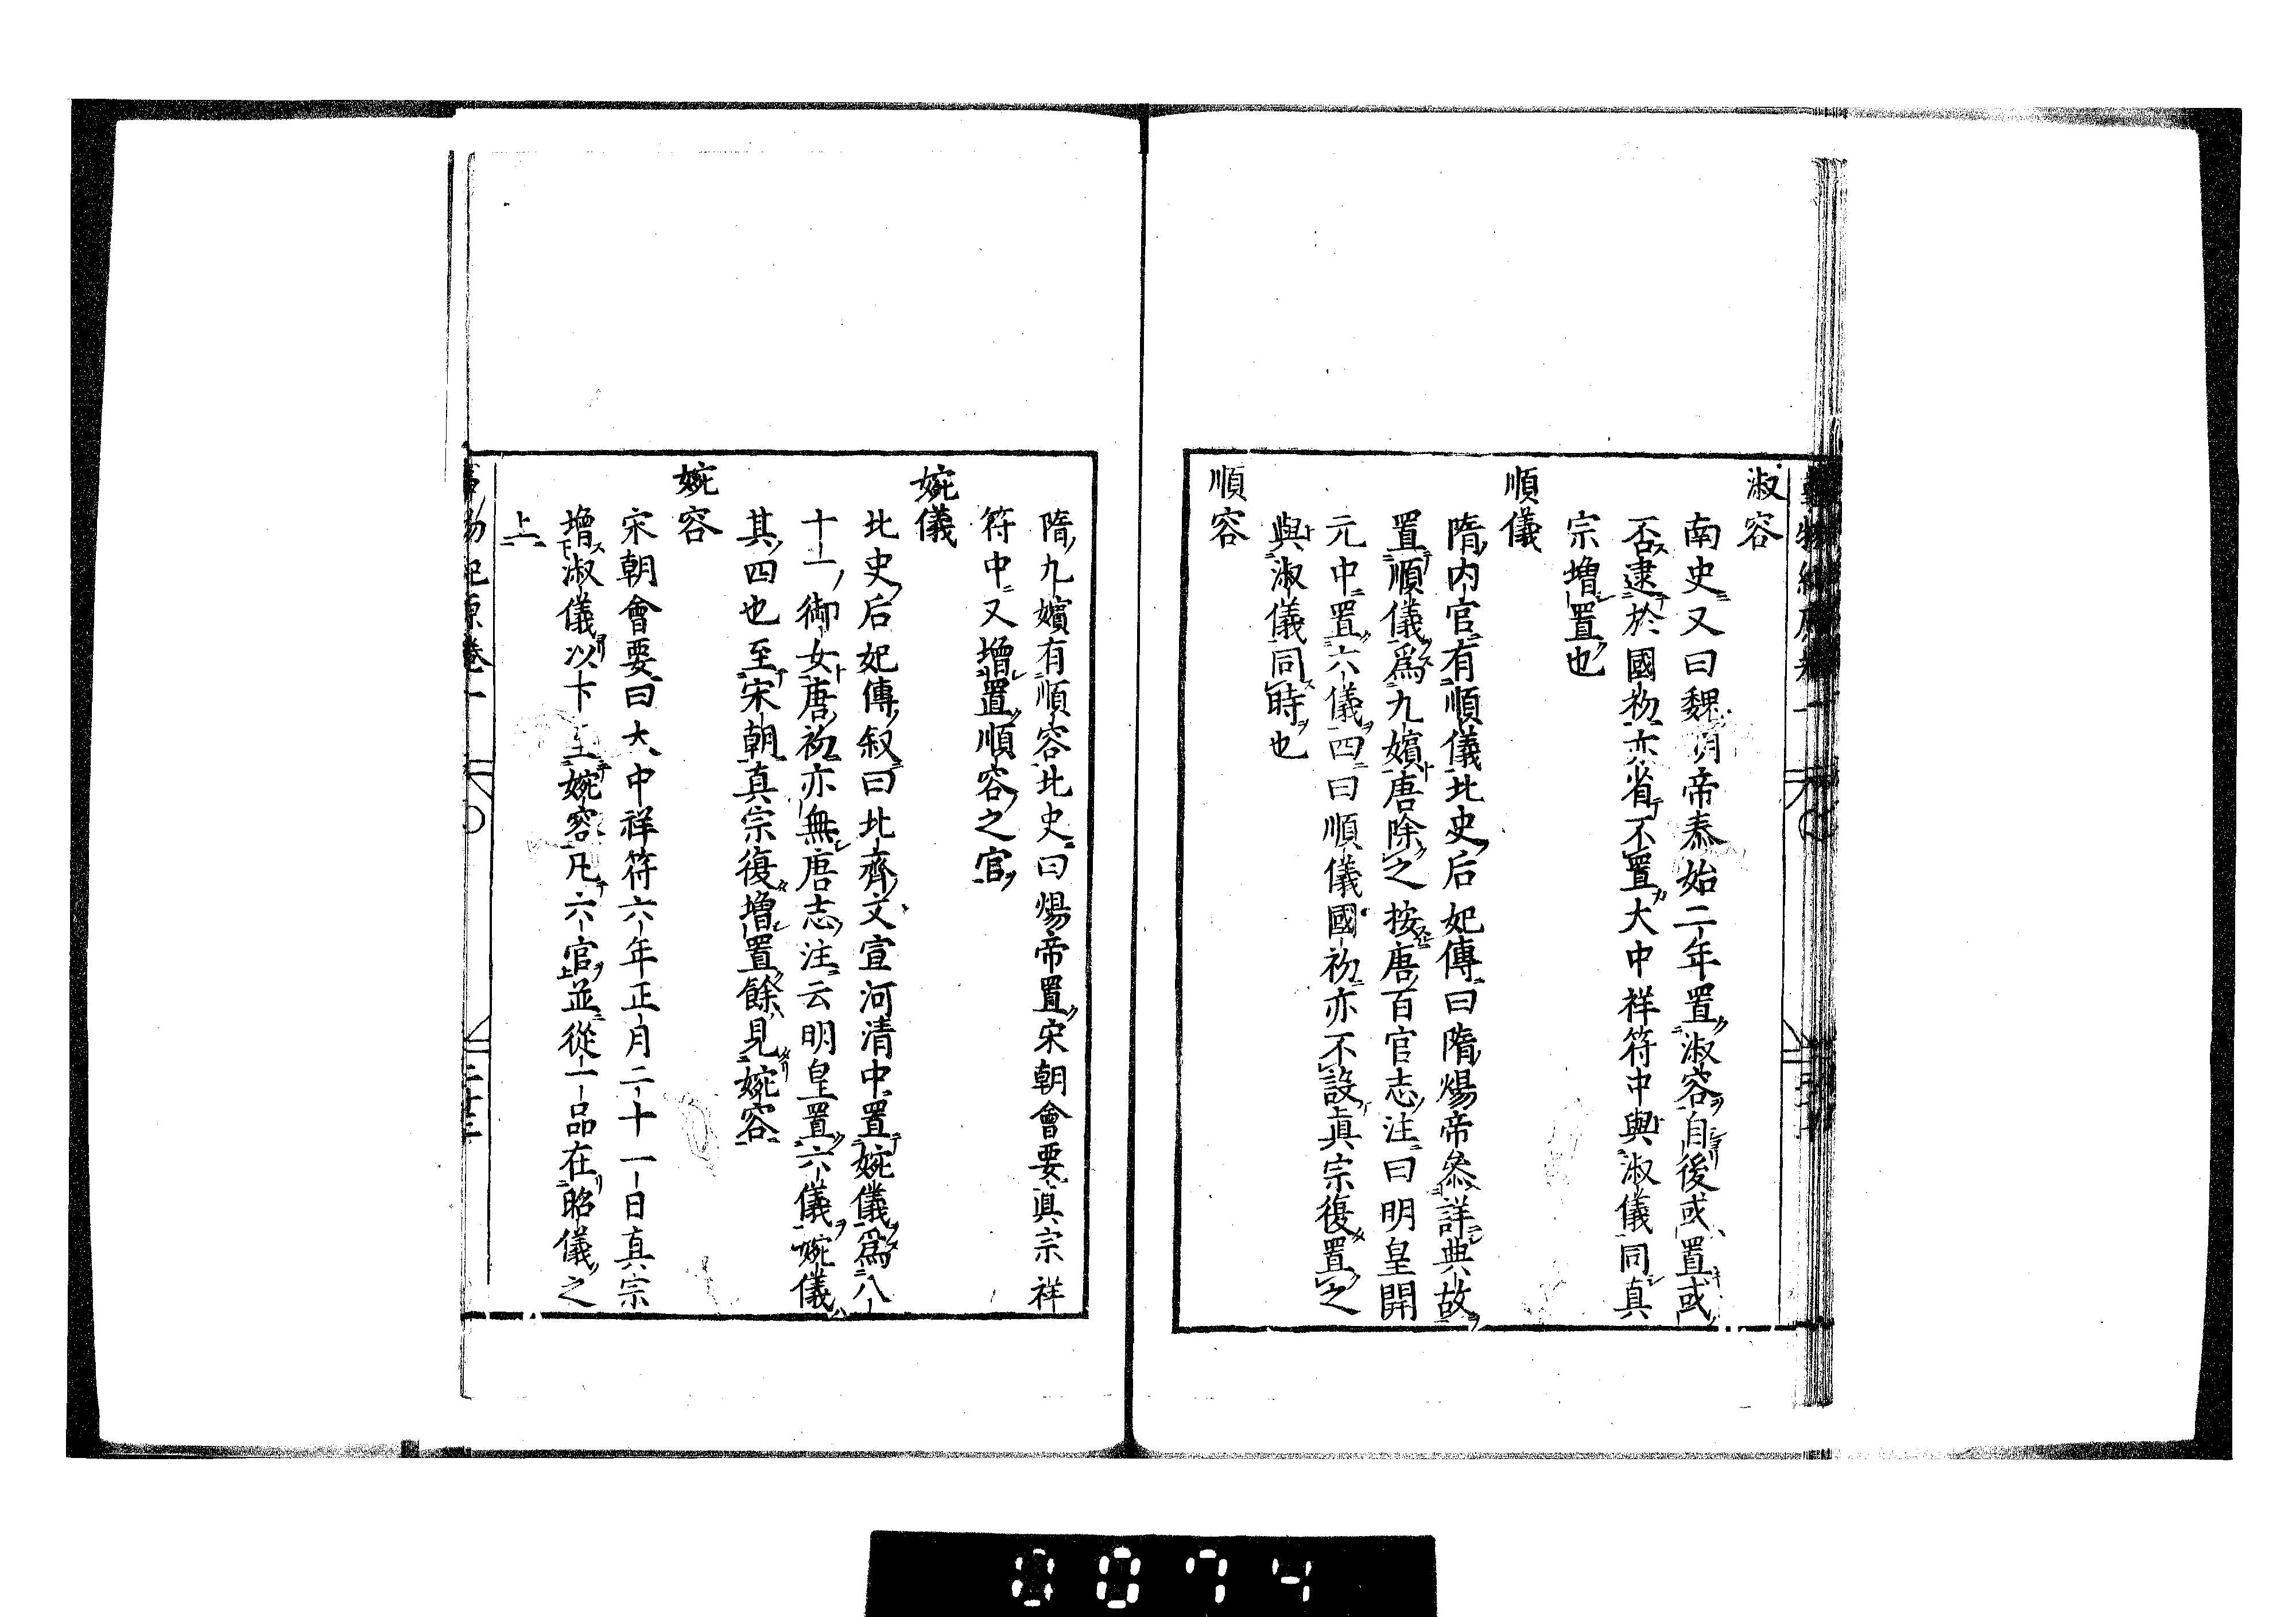 淑容
南史又曰魏明帝泰始二年置淑容自後或置或
否逮於國初亦省不置大中祥符中與淑儀同真
宗增置也
順儀
隋内官有順儀北史后妃傳曰隋煬帝叅詳典故
置順儀爲九嬪唐除之按唐百官志注曰明皇開
元中置六儀四曰順儀國初亦不設真宗復置之
與淑儀同時也
順容
隋九嬪有順容北史曰煬帝置宋朝會要真宗祥
符中又增置順容之官
婉儀
北史后妃傳叙曰北齊文宣河清中置婉儀爲八
十一御女唐初亦無唐志注云明皇置六儀婉儀
其四也至宋朝真宗復增置餘見婉容
婉容
宋朝會要曰大中祥符六年正月二十一日真宗
增淑儀以下至婉容凡六官並從一品在昭儀之
上
事物紀原卷一
二十三
0074